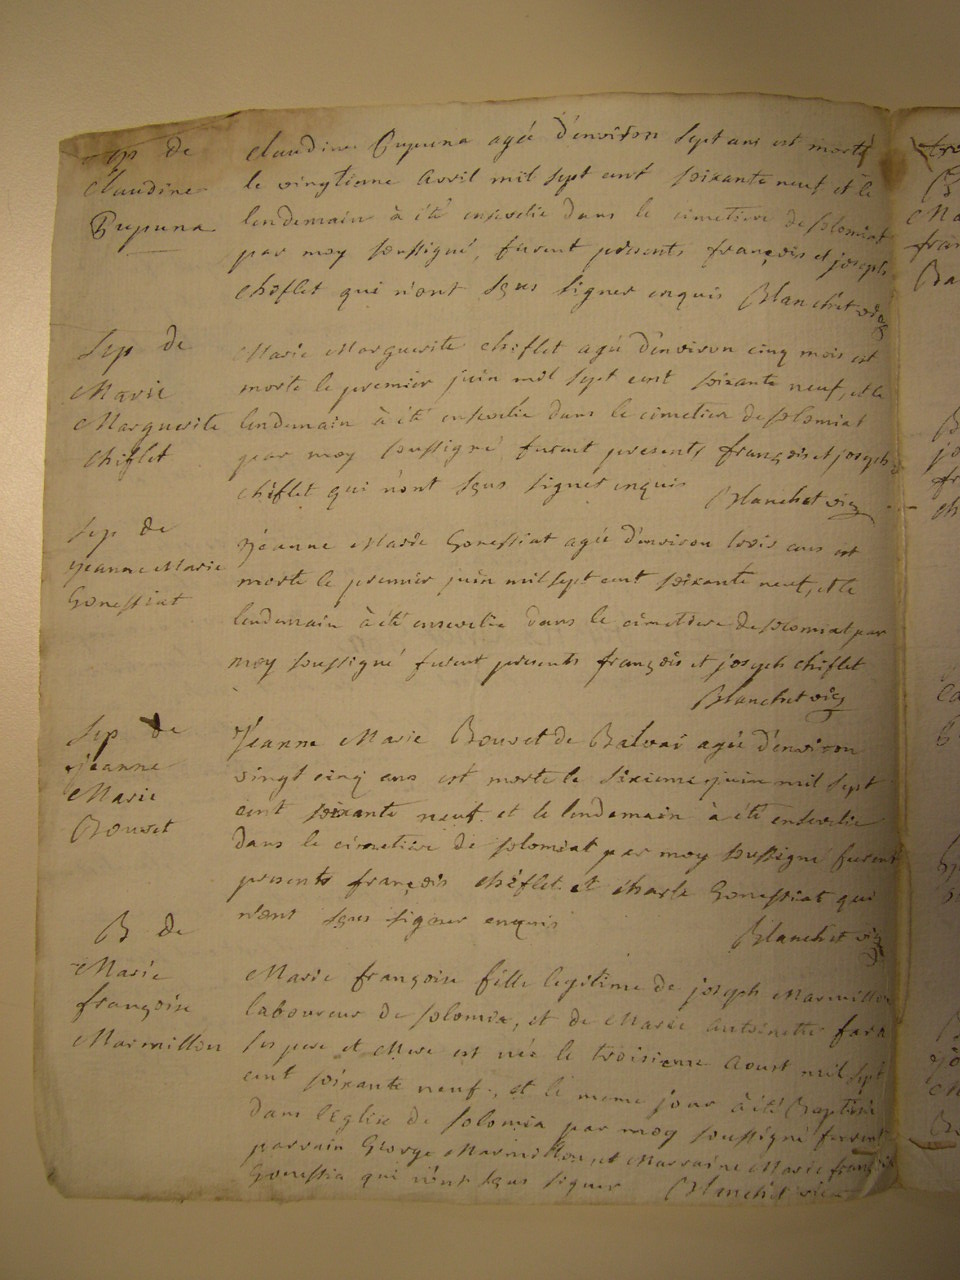 Sep de
Claudine
Pupuna
Claudine Pupuna agée d'environ sept ans est morte
le vingtieme Avril mil sept cent soixante neuf et le
lendemain à été ensevelie dans le cimetiere de solomiat
par moy soussigné, furent présents françois et joseph
chiflet qui n'ont sçus signer enquis Blanchet vic
Sep de
Marie
Marguerite
Chiflet
Marie Marguerite chiflet agée d'environ cinq mois est
morte le premier juin mil sept cent soixante neuf, et le
lendemain à été ensevelie dans le cimetiere de solomiat
par moy soussigné furent presents françois et joseph
chiflet qui n'ont sçus signer enquis Blanchet vic
Sep de
jeanne Marie
Gonessiat
jeanne Marie Gonessiat agée d'environ trois ans est
morte le premier juin mil sept cent soixante neuf, et le
lendemain à été ensevelie dans le cimetiere de solomiat par
moy soussigné furent presents françois et joseph chiflet
Blanchet vic
Sep de
jeanne
Marie
Bouvet
Jeanne Marie Bouvet de agée d'environ
vingt cinq ans est morte le sixieme juin mil sept
cent soixante neuf et le lendemain à été ensevelie
dans le cimetiere de solomiat par moy soussigné furent
presents françois chiflet et charle Gonessiat qui
n'ont sçus signer enquis Blanchet vic
B de
Marie
françoise
Marmillon
Marie françoise fille legitime de joseph Marmillon
laboureur de solomia, et de Marie Antoinette
ses pere et Mere est née le troisieme Aoust mil sept
cent soixante neuf, et le meme jour à été Baptisée
dans l'Eglise de solomia par moy soussigné furent
parrain George Marmillon, et Marraine Marie françoise
Gonessia qui n'ont sçus signer Blanchet vic